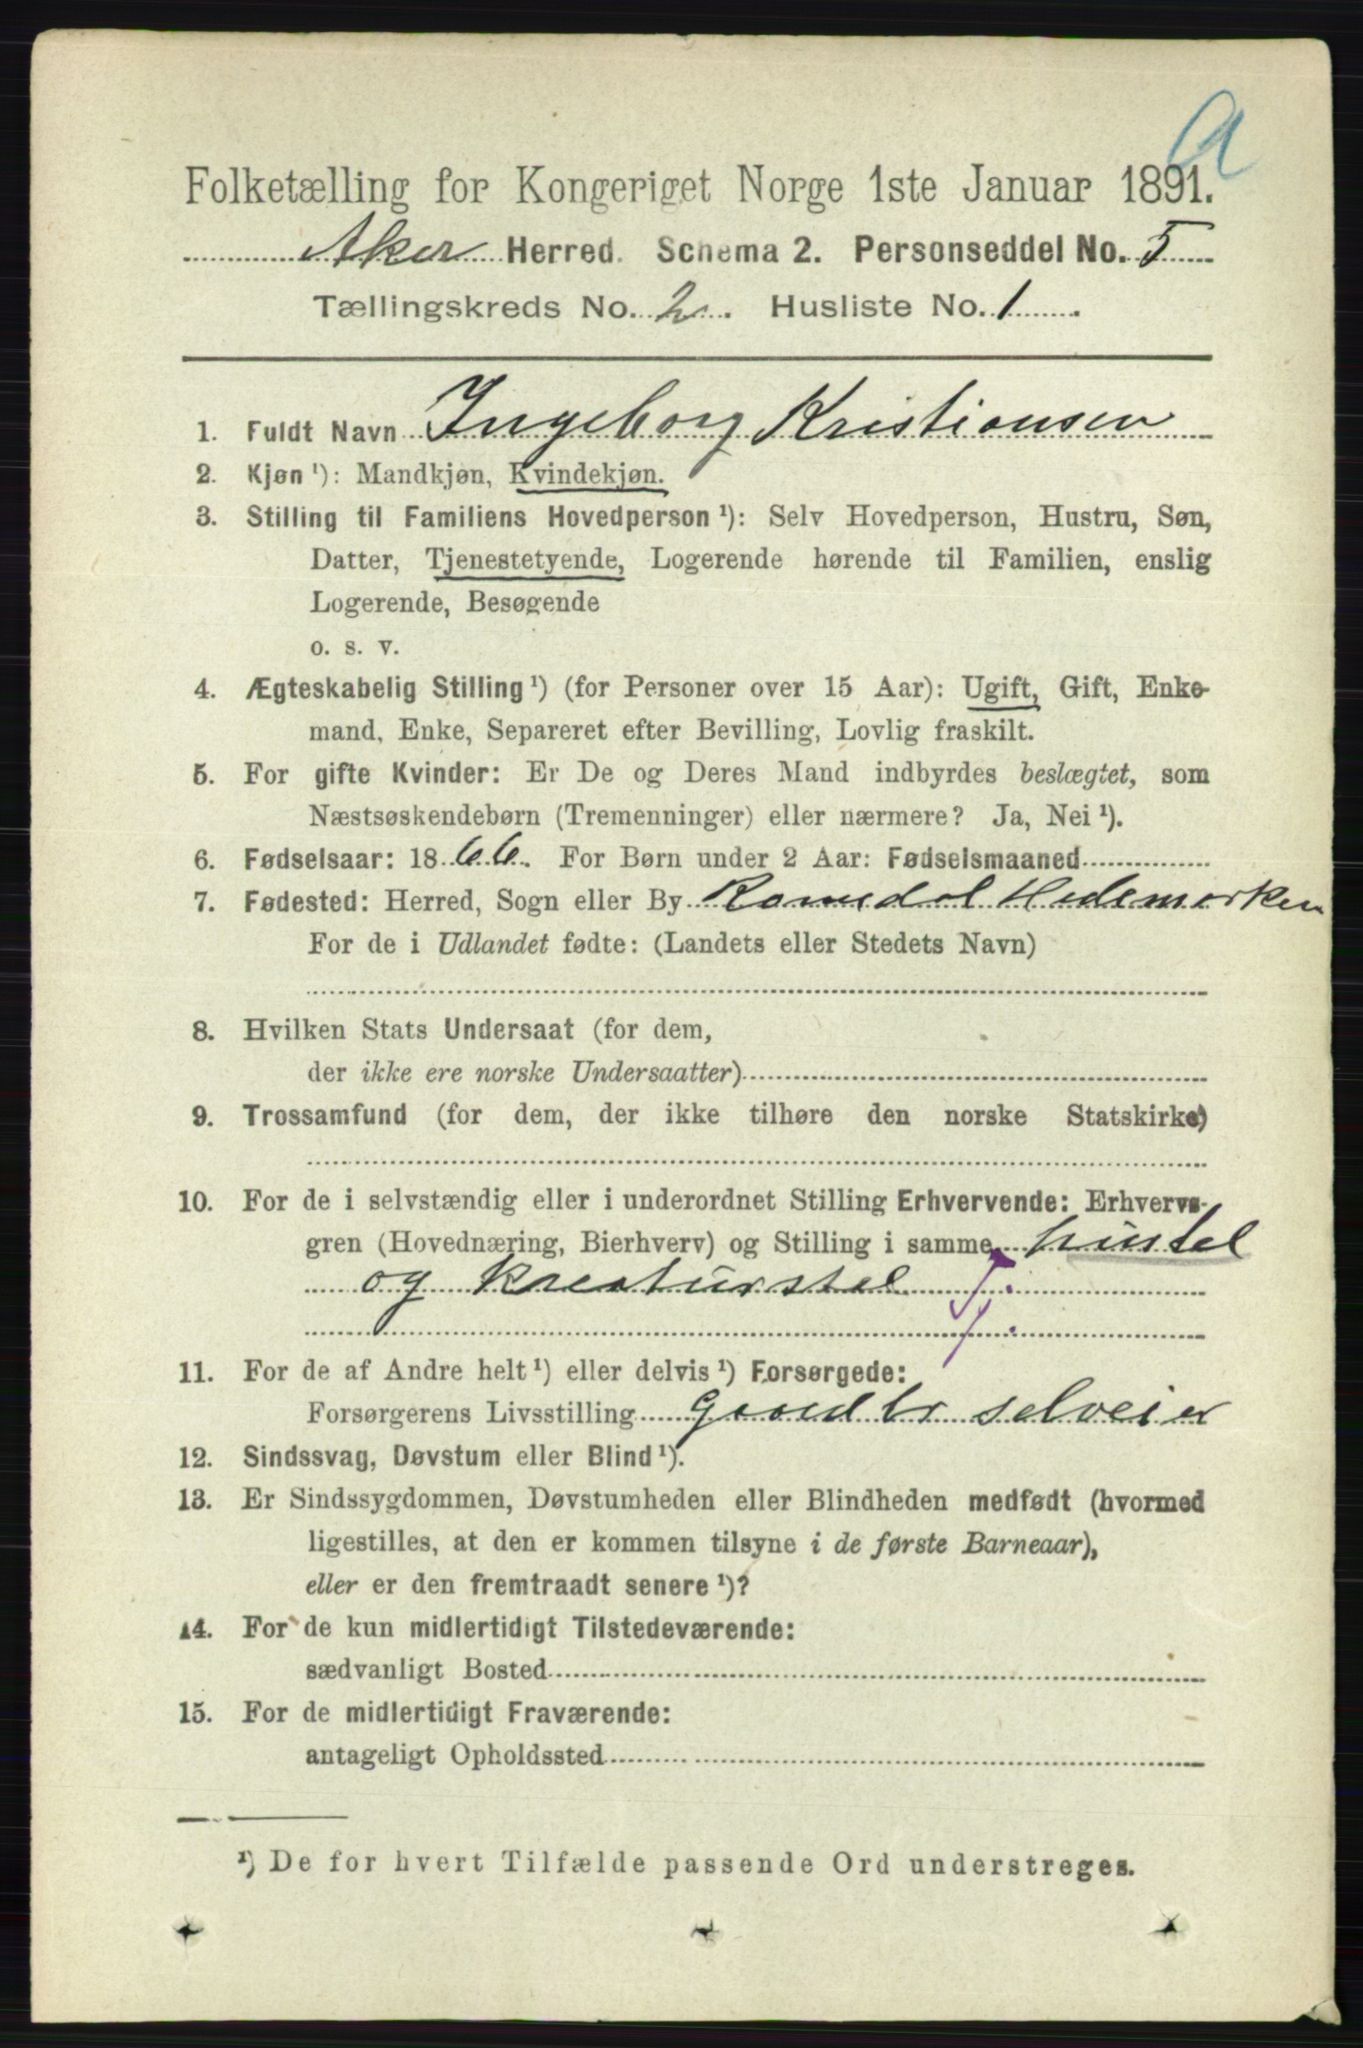 a
Folketælling for Kongeriget Norge 1ste Januar 1891.
Aker Herred. Schema 2. Personseddel No. 5
Tællingskreds No. 2. Husliste No. 1.
1. Fuldt Navn Ingeborg Kristiansen
2. Kjøn ¹): Mandkjøn, Kvindekjøn.
3. Stilling til Familiens Hovedperson ¹): Selv Hovedperson, Hustru, Søn,
Datter, Tjenestetyende, Logerende hørende til Familien, enslig
Logerende, Besøgende
o. s. v.
4. Ægteskabelig Stilling ¹) (for Personer over 15 Aar): Ugift, Gift, Enke-
mand, Enke, Separeret efter Bevilling, Lovlig fraskilt.
5. For gifte Kvinder: Er De og Deres Mand indbyrdes beslægtet, som
Næstsøskendebørn (Tremenninger) eller nærmere? Ja, Nei ¹).
6. Fødselsaar: 1866. For Børn under 2 Aar: Fødselsmaaned
7. Fødested: Herred, Sogn eller By Romedal Hedemarken
For de i Udlandet fødte: (Landets eller Stedets Navn)
8. Hvilken Stats Undersaat (for dem,
der ikke ere norske Undersaatter)
9. Trossamfund (for dem, der ikke tilhøre den norske Statskirke)
10. For de i selvstændig eller i underordnet Stilling Erhvervende: Erhvervs-
gren (Hovednæring, Bierhverv) og Stilling i samme hustel
og kreaturstel T.
11. For de af Andre helt ¹) eller delvis ¹) Forsørgede:
Forsørgerens Livsstilling Gaardbr selveier
12. Sindssvag, Døvstum eller Blind ¹).
13. Er Sindssygdommen, Døvstumheden eller Blindheden medfødt (hvormed
ligestilles, at den er kommen tilsyne i de første Barneaar),
eller er den fremtraadt senere ¹)?
14. For de kun midlertidigt Tilstedeværende:
sædvanligt Bosted
15. For de midlertidigt Fraværende:
antageligt Opholdssted
¹) De for hvert Tilfælde passende Ord understreges.